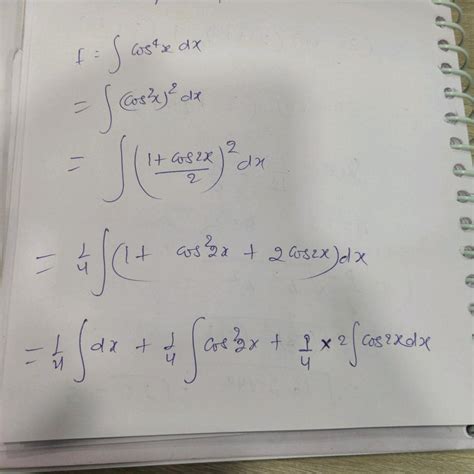 I = ∫ cos⁴x dx
= ∫ (cos²x)² dx
= ∫ ((1 + cos2x)/2)² dx
= 1/4 ∫ (1 + cos²2x + 2cos2x) dx
= 1/4 ∫ dx + 1/4 ∫ cos²2x + 1/4 × 2 ∫ cos2x dx